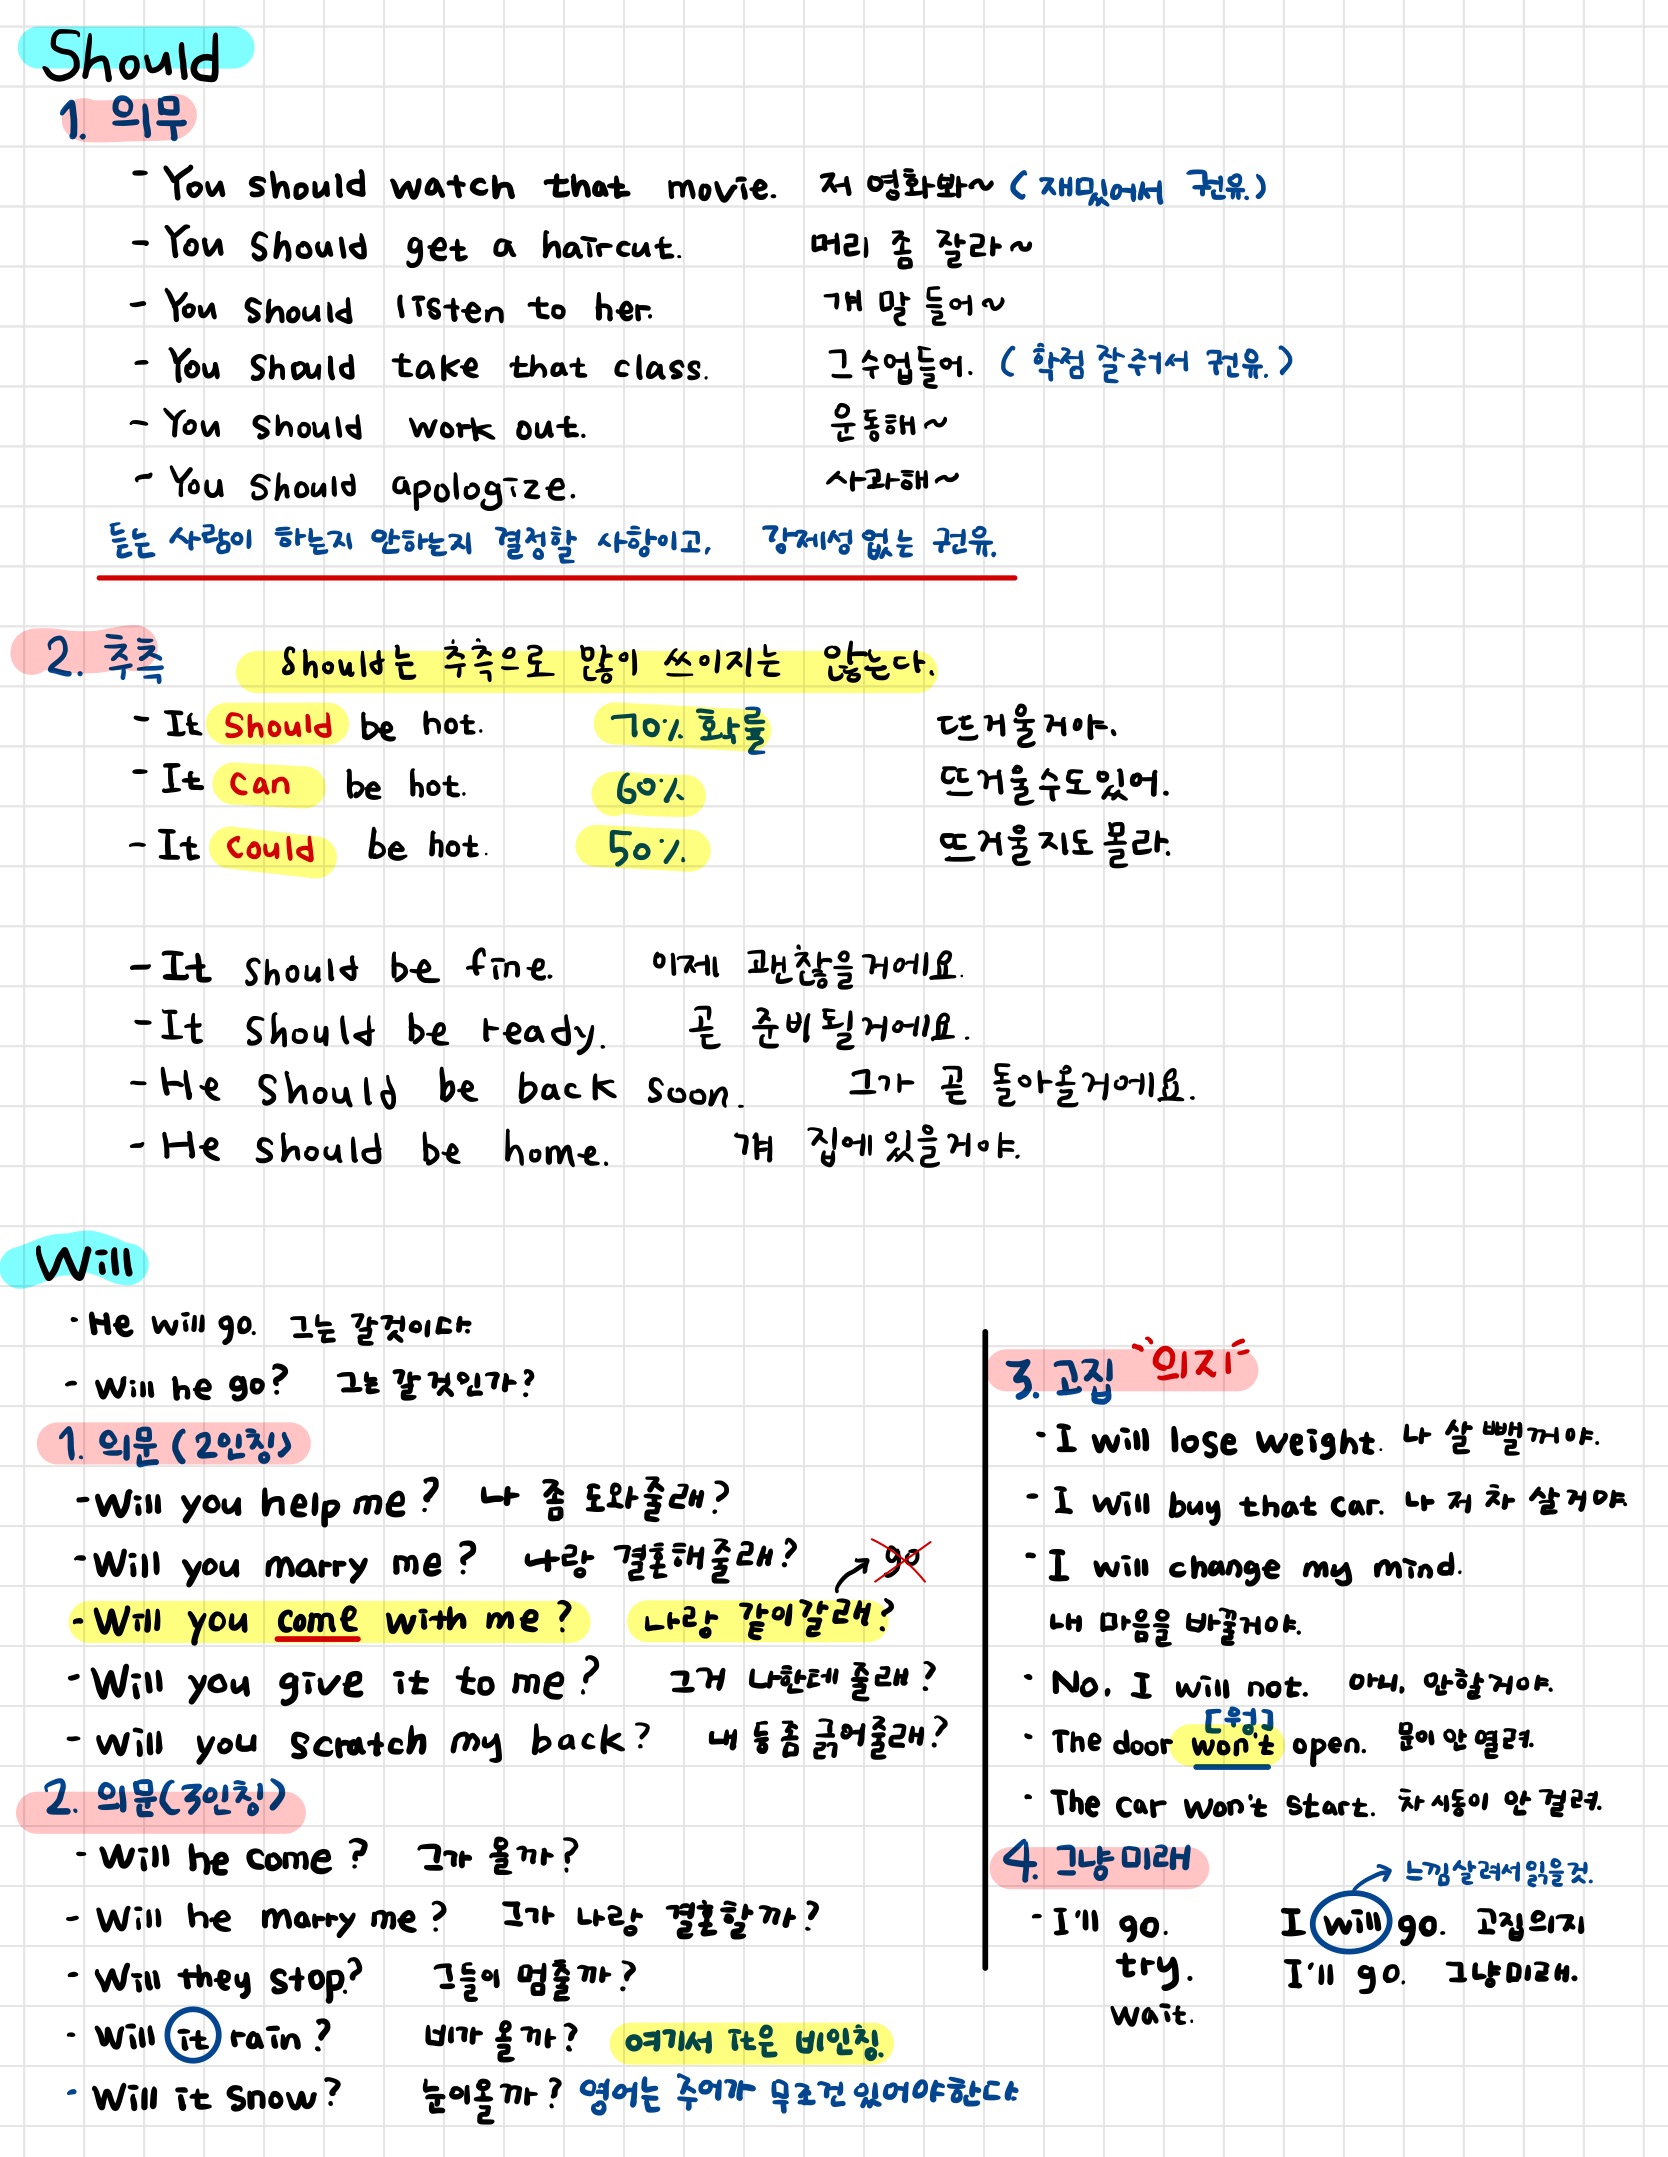 Should
1. 의무
- You should watch that movie. 저 영화봐~ (재밌어서 권유.)
- You should get a haircut. 머리 좀 잘라~
- You should listen to her. 걔 말 들어~
- You should take that class. 그수업들어. (학점 잘줘서 권유.)
- You should work out. 운동해~
- You should apologize. 사과해~
듣는 사람이 하는지 안하는지 결정할 사항이고, 강제성없는 권유.
2. 추측 Should는 추측으로 많이 쓰이지는 않는다.
- It should be hot. 70% 확률 뜨거울거야.
- It can be hot. 60% 뜨거울수도있어.
- It could be hot. 50% 뜨거울지도 몰라.
- It should be fine. 이제 괜찮을거에요.
- It should be ready. 곧 준비될거에요.
- He should be back soon. 그가 곧 돌아올거에요.
- He should be home. 걔 집에있을거야.
Will
- He will go. 그는 갈것이다.
- Will he go? 그는 갈것인가?
1. 의문 (2인칭)
- Will you help me? 나 좀 도와줄래?
- Will you marry me? 나랑 결혼해줄래? go
- Will you come with me? 나랑 같이갈래?
- Will you give it to me? 그거 나한테 줄래?
- Will you scratch my back? 내 등좀 긁어줄래?
2. 의문(3인칭)
- Will he come? 그가 올까?
- Will he marry me? 그가 나랑 결혼할까?
- Will they stop? 그들이 멈출까?
- Will it rain? 비가 올까? 여기서 It은 비인칭.
- Will it snow? 눈이올까? 영어는 주어가 무조건 있어야한다
3. 고집 "의지"
- I will lose weight. 나 살 뺄꺼야.
- I will buy that car. 나 저 차 살거야
- I will change my mind.
내 마음을 바꿀거야.
- No, I will not. 아니, 안할거야.
[웡]
- The door won't open. 문이 안열려.
- The car won't start. 차 시동이 안 걸려.
4. 그냥미래
느낌살려서읽을것.
- I'll go. I will go. 고집의지
try. I'll go. 그냥미래.
wait.